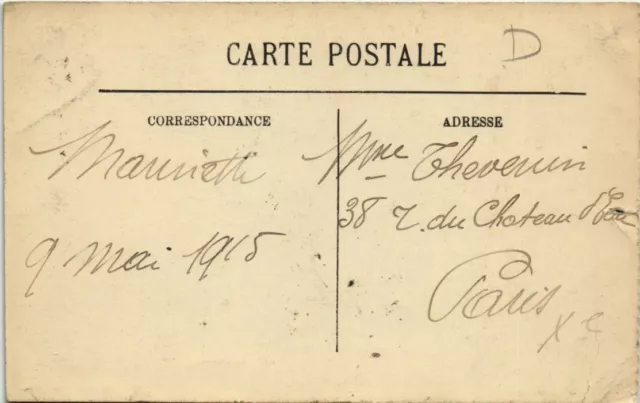 D
CARTE POSTALE
CORRESPONDANCE
9 mai 1915
ADRESSE
Mme Thevenin
38 r. du Chateau d'Eau
Paris
Xe